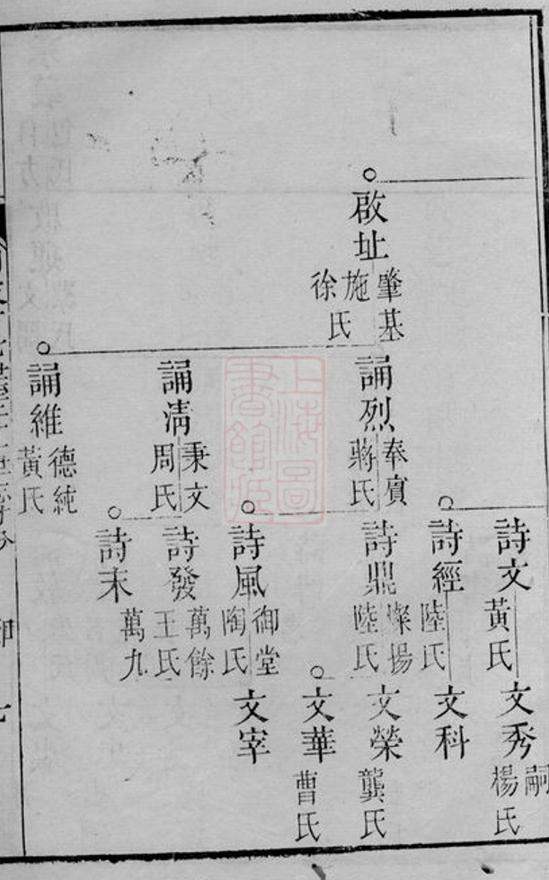 啟址
肇基
施
徐氏
誦烈
奉賓
蔣氏
誦清
秉文
周氏
誦維
德純
黃氏
詩文
黃氏
詩經
陸氏
詩鼎
燦揚
陸氏
詩風
御堂
陶氏
詩發
萬餘
王氏
詩末
萬九
文秀
嗣
楊氏
文科
文榮
龔氏
文華
曹氏
文宰
上海圖書館藏